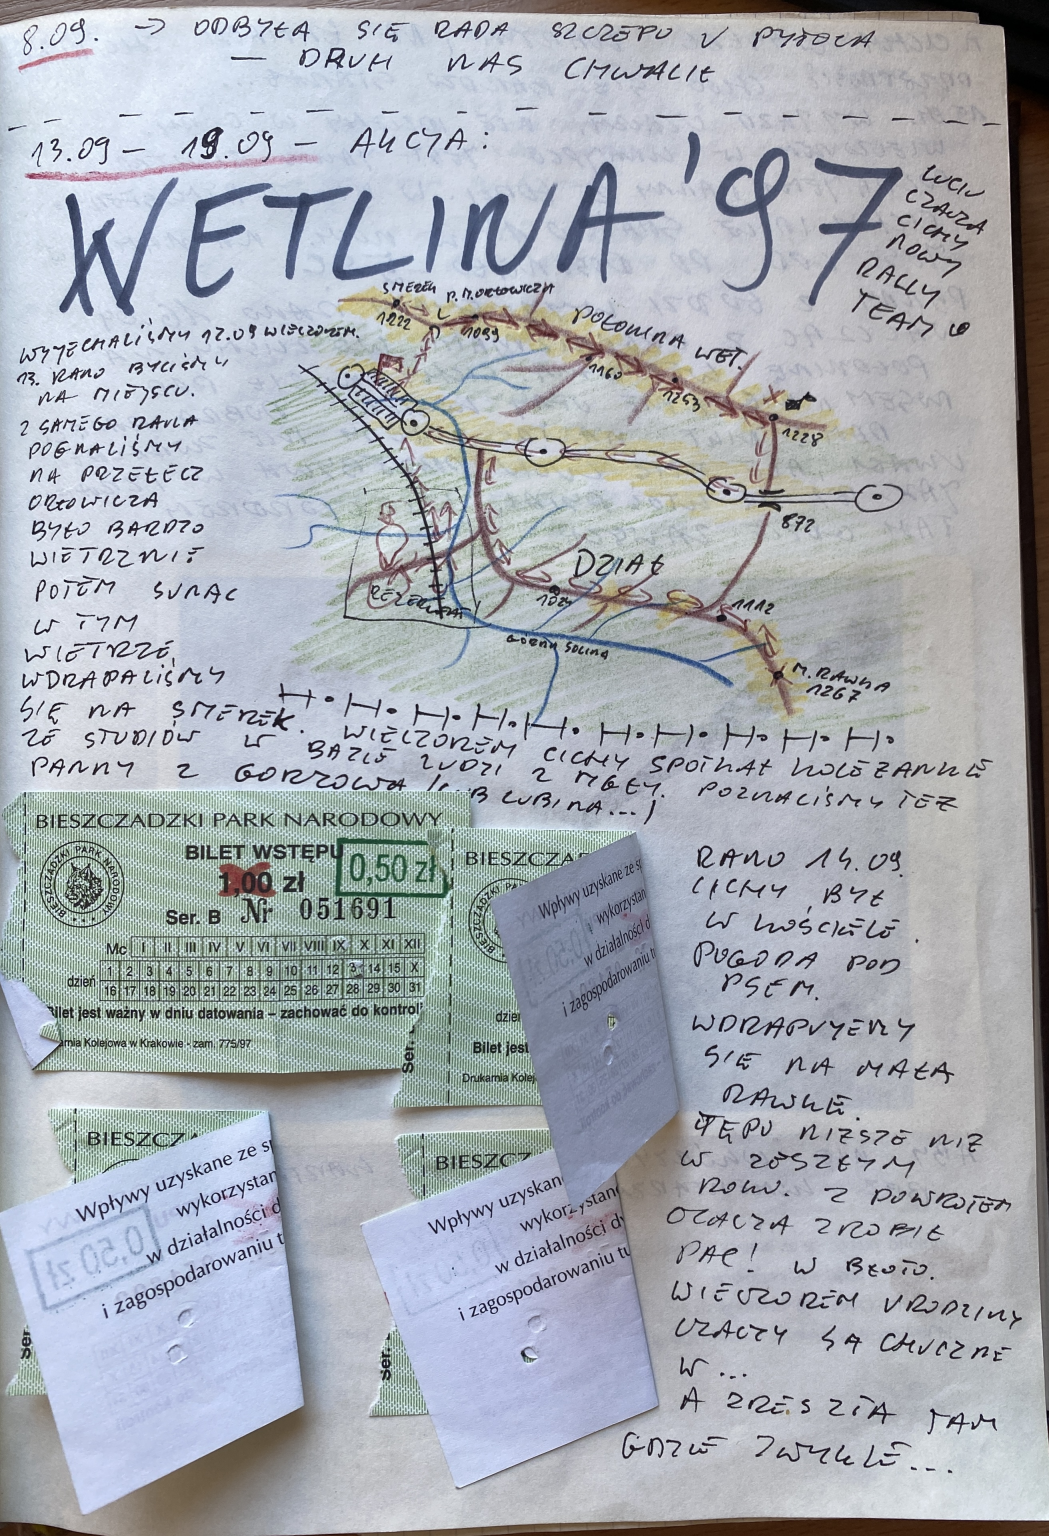 8.09. → ODBYŁA SIĘ RADA SZCZEPU U PYTOCA
— DRUH NAS CHWALIŁ
13.09 – 19.09 – AKCJA:
WETLINA '97
LUCIU
CZACZA
CICHY
NOWY
RALLY
TEAM
SMEREK
1222
P. M. ORŁOWICZA
1099
POŁONINA WET.
1160
1253
1228
872
DZIAŁ
REZERWAT
1112
GÓRNA SOLINA
M. RAWKA
1267
WYJECHALIŚMY 12.09 WIECZOREM.
13. RANO BYLIŚMY
NA MIEJSCU.
Z SAMEGO RANA
POGNALIŚMY
NA PRZEŁĘCZ
ORŁOWICZA
BYŁO BARDZO
WIETRZNIE
POTEM
W TYM
WIETRZE,
WDRAPALIŚMY
SIĘ NA SMEREK. WIECZOREM CICHY SPOTKAŁ KOLEŻANKĘ
ZE STUDIÓW W BAZIE LUDZI Z MGŁY. POZNALIŚMY TEŻ
PANNY Z GORZOWA (LUB LUBINA...)
BIESZCZADZKI PARK NARODOWY
BIESZCZADZKI PARK NARODOWY
BILET WSTĘPU
1,00 zł
0,50 zł
Ser. B Nr 051691
Mc I II III IV V VI VII VIII IX X XI XII
dzień 1 2 3 4 5 6 7 8 9 10 11 12 3 14 15 X
16 17 18 19 20 21 22 23 24 25 26 27 28 29 30 31
Bilet jest ważny w dniu datowania – zachować do kontrol
Kolejowa w Krakowie - zam. 775/97
Ser.
BIESZCZA
dzie
Bilet jest
Drukarnia Kolej
Wpływy uzyskane ze s
wykorzystan
w działalności d
i zagospodarowaniu t
BIESZCZA
Wpływy uzyskane ze s
wykorzystan
w działalności d
i zagospodarowaniu t
0,50 zł
Ser.
BIESZCZ
Wpływy uzyskan
wykorzystan
w działalności dy
i zagospodarowaniu tu
Ser.
RANO 14.09.
CICHY BYŁ
W KOŚCIELE.
POGODA POD
PSEM.
WDRAPUJEMY
SIĘ NA MAŁĄ
RAWKĘ.
TĘPO NIŻSZE NIŻ
W ZESZŁYM
ROKU. Z POWROTEM
CZACZA ZROBIŁ
PAC! W BŁOTO.
WIECZOREM URODZINY
CZACZY SĄ HUCZNE
W...
A ZRESZTĄ TAM
GDZIE ZWYKLE...